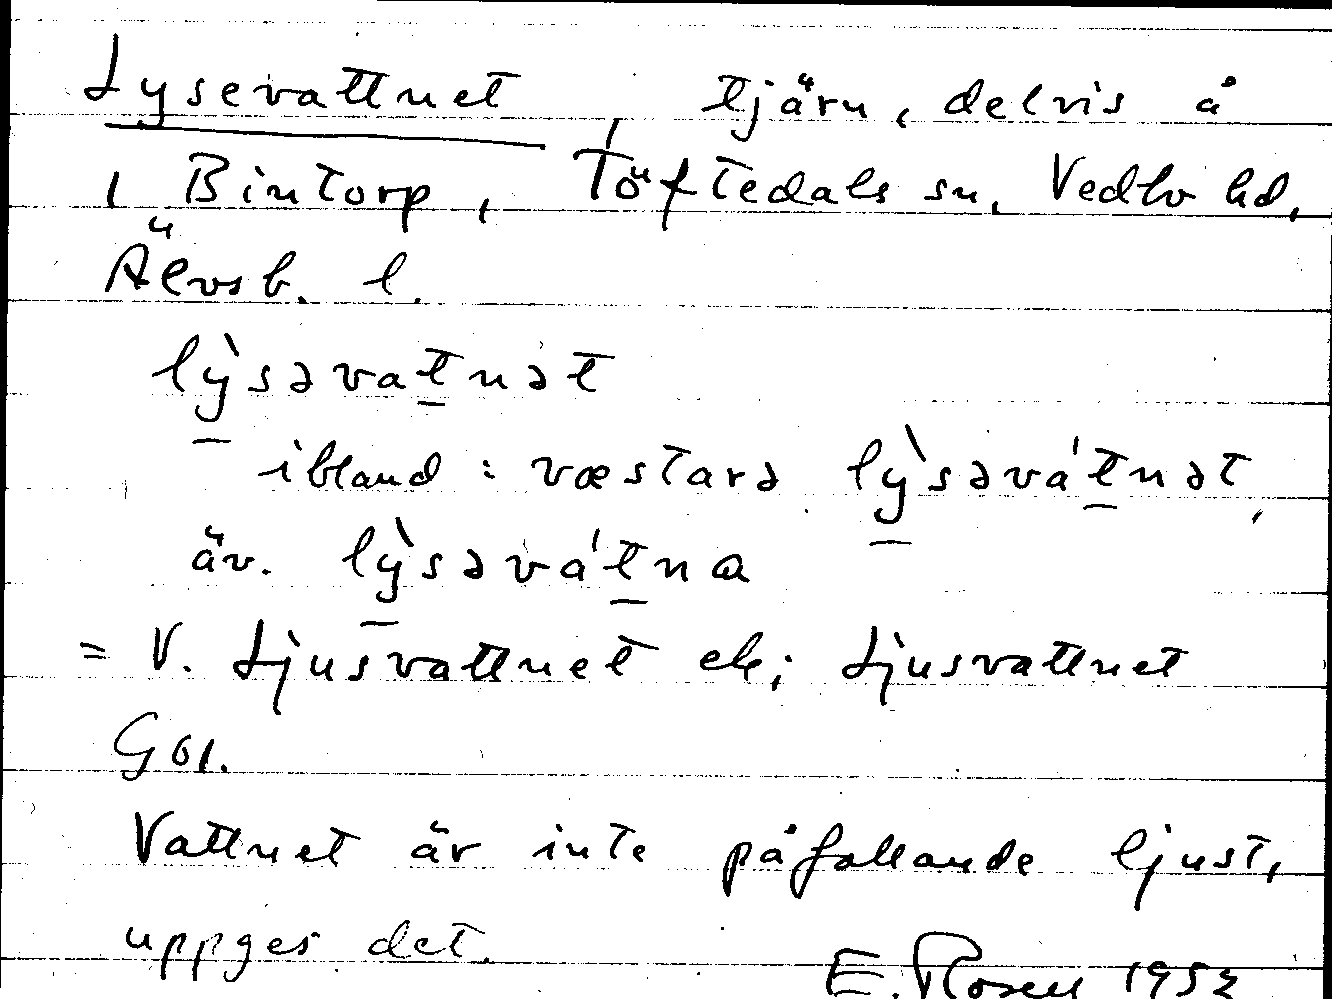 Lysevattnet tjärn, delvis å
1 Bintorp, Töftedals sn, Vedbo hd,
Älvsb. l.
lỳsəvat̲nət
ibland: væstarə lỳsəvát̲nət,
äv. lỳsəvát̲na
= V. Ljusvattnet ek; Ljusvattnet
G01.
Vattnet är inte påfallande ljust,
uppges det.
E. Rosen 1952